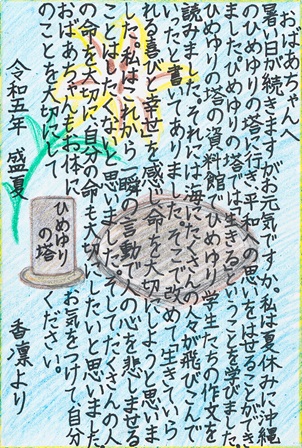 おばあちゃんへ
暑い日が続きますがお元気ですか。私は夏休みに沖縄
のひめゆりの塔に行き、平和への思いをはせることができ
ました。ひめゆりの塔では、生きるということを学びました。
ひめゆりの塔の資料館でひめゆり学生たちの作文を
読みました。それには海にたくさんの人々が飛びこんで
いったと書いてありました。そこで改めて「生きていら
れる喜びと幸せを感じ、命を大切にしようと思いま
した。私はこれから一瞬の言動で人の心を悲しませる
ことはしたくないと思いました。そしてたくさんの人
の命を大切に、自分の命も大切にしたいと思いました。
おばあちゃんもお体に お気をつけて、自分
のことを大切にして ください。
令和五年 盛夏
香凜より
ひめゆり
の塔